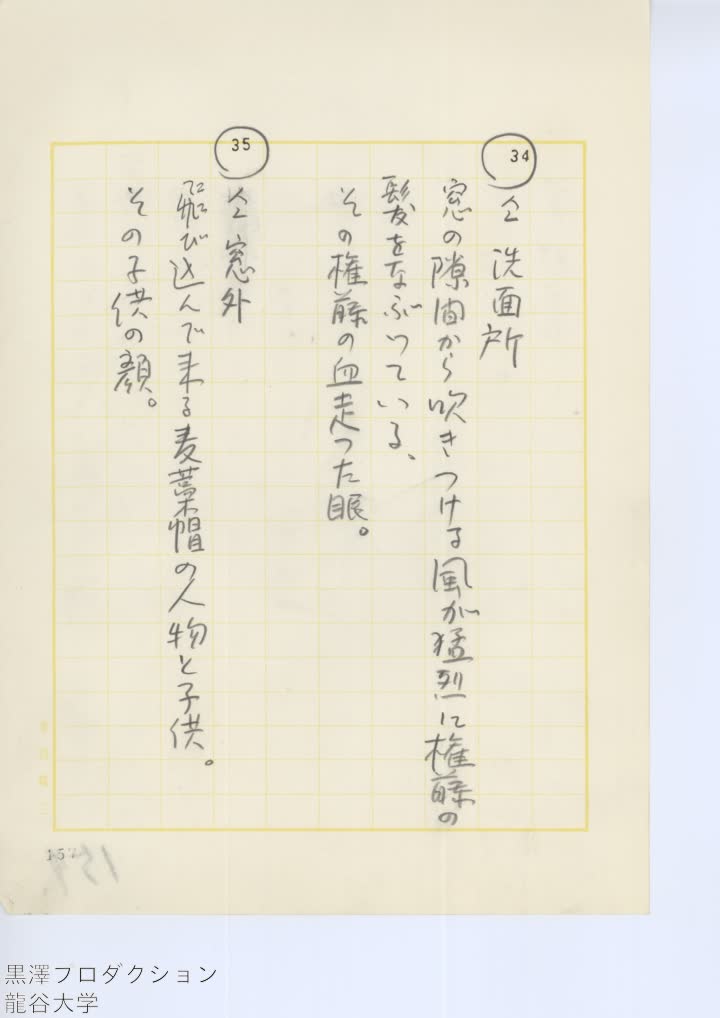 34
仝 洗面所
窓の隙間から吹きつける風が猛烈に権藤の
髪をなぶっている、
その権藤の血走った眼。
35
仝 窓外
飛び込んで来る麦藁帽の人物と子供。
その子供の顔。
157
黒澤プロダクション
龍谷大学